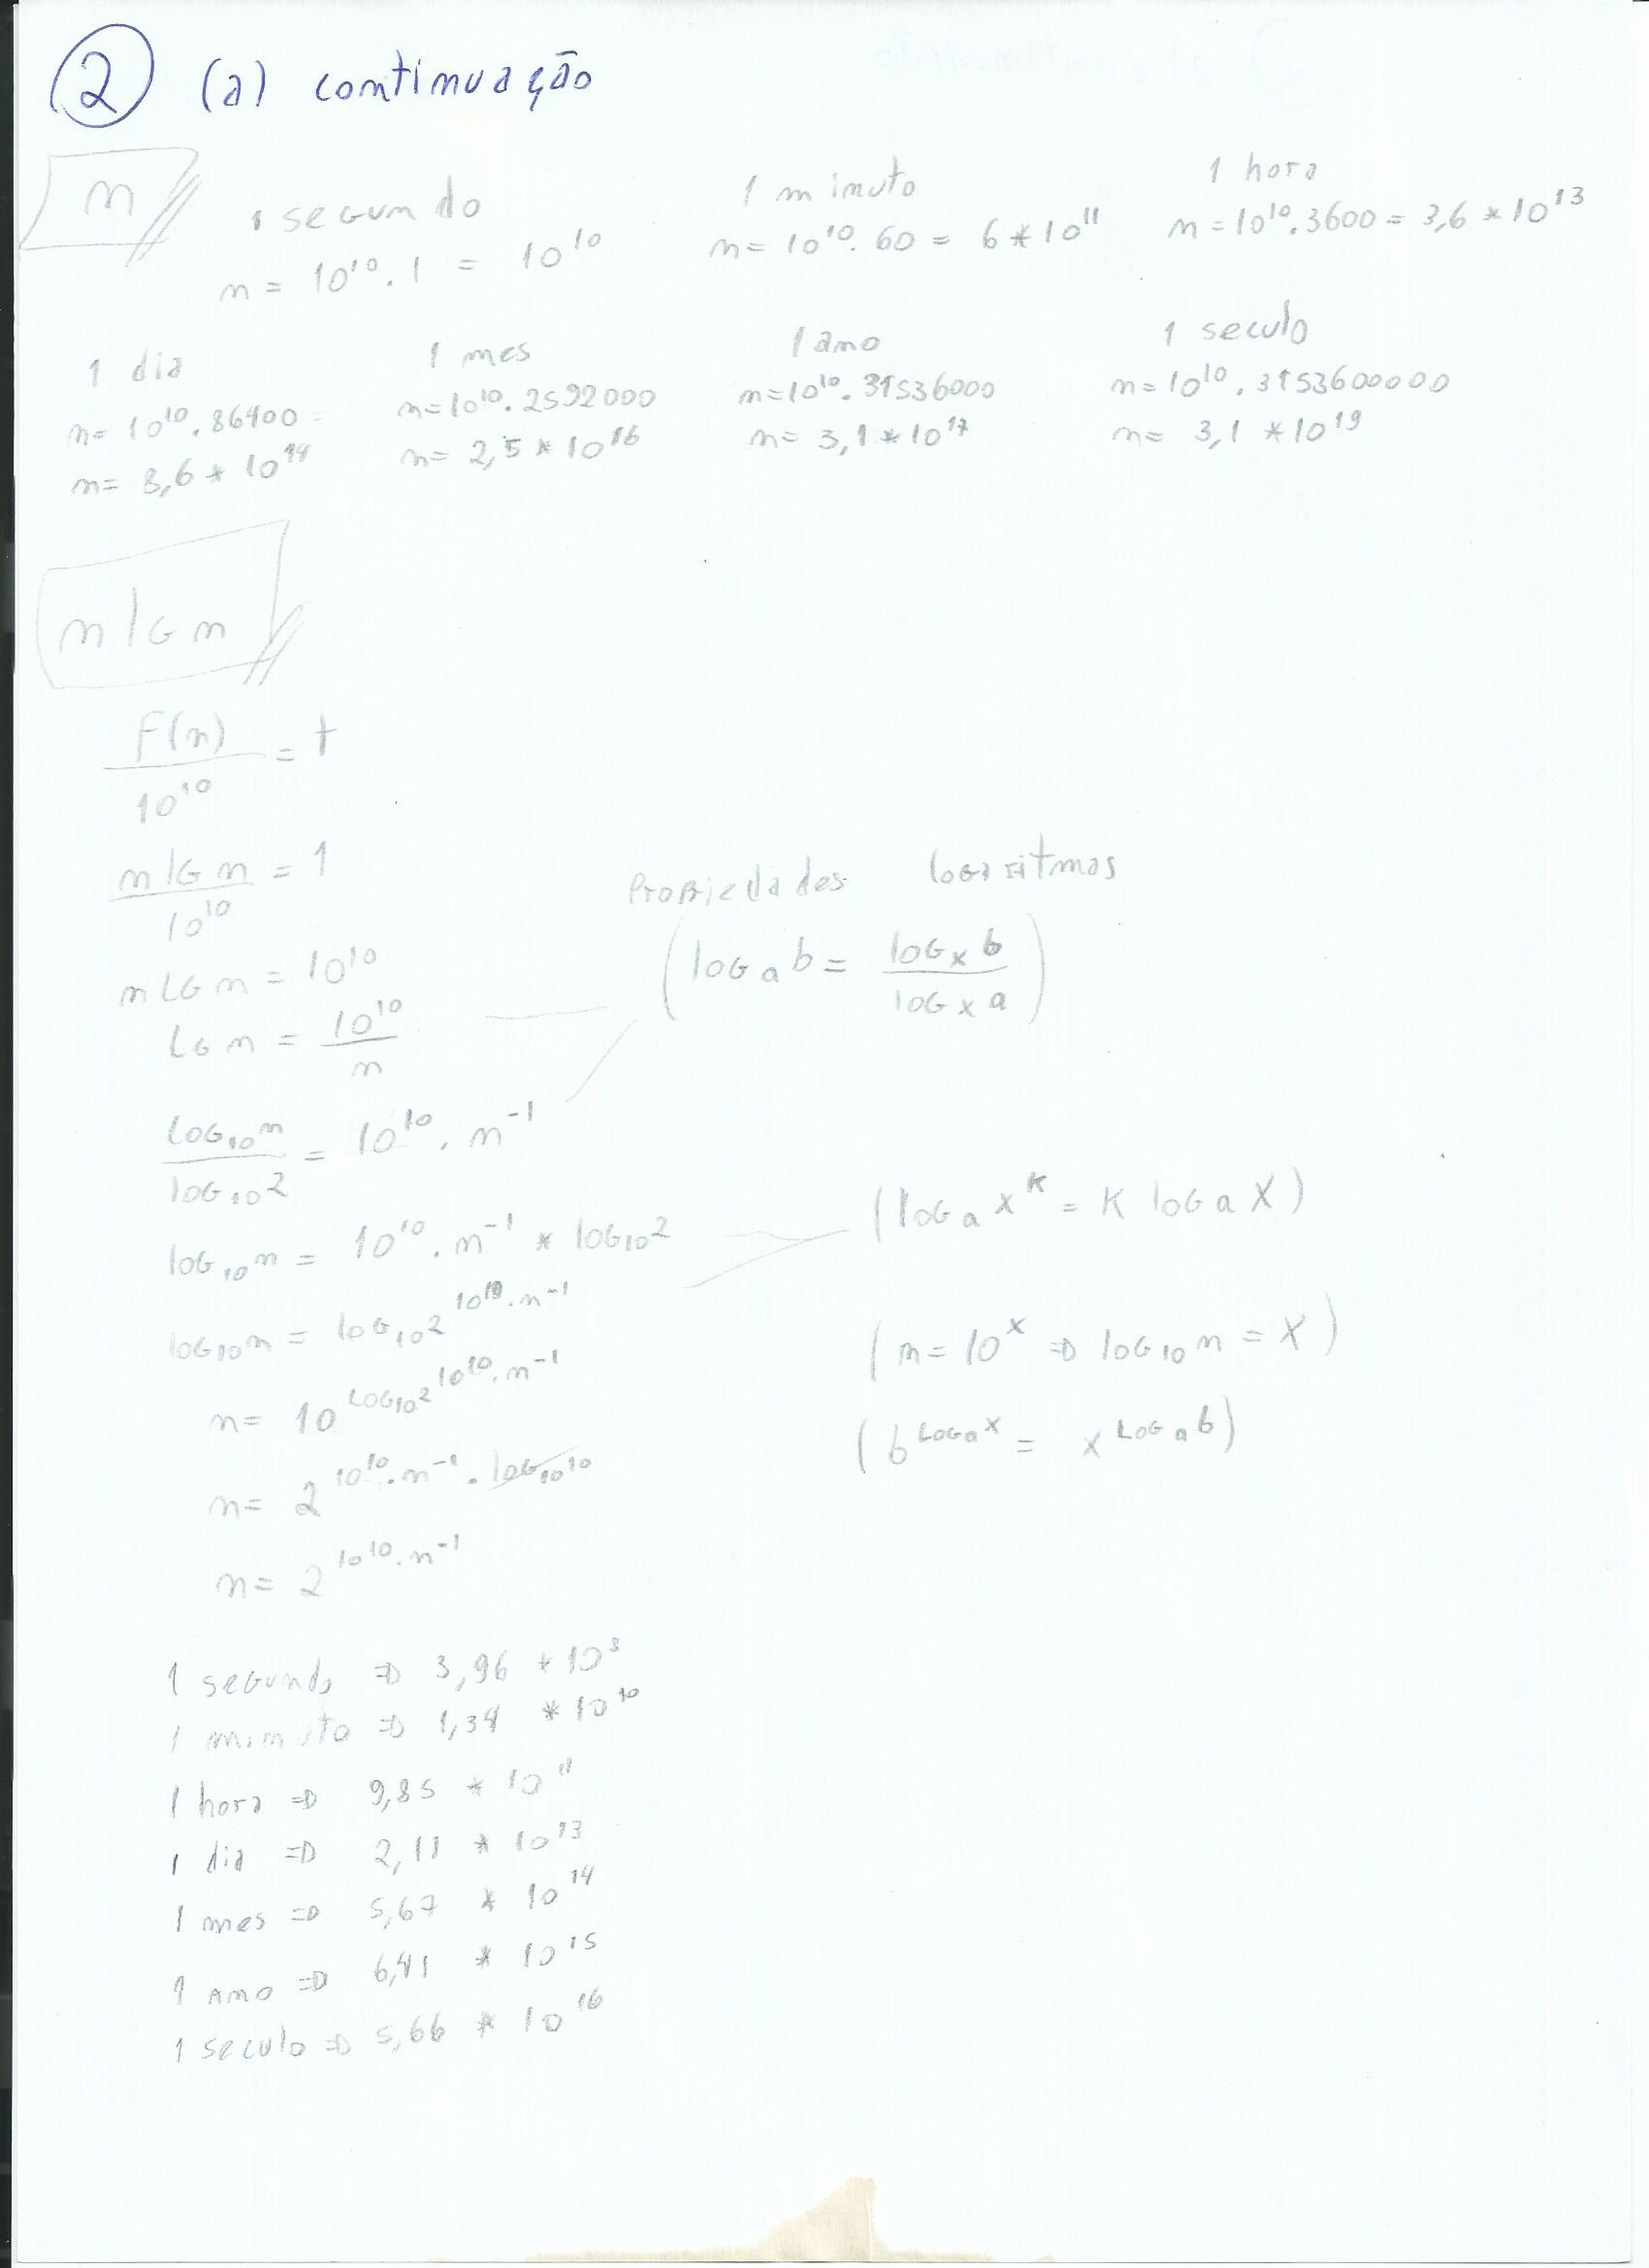 2 (a) continuação
n
1 segundo
n = 10^10 . 1 = 10^10
1 minuto
n = 10^10 . 60 = 6 * 10^11
1 hora
n = 10^10 . 3600 = 3,6 * 10^13
1 dia
n = 10^10 . 86400 =
n = 8,6 * 10^14
1 mes
n = 10^10 . 2592000
n = 2,5 * 10^16
1 ano
n = 10^10 . 31536000
n = 3,1 * 10^17
1 seculo
n = 10^10 . 3153600000
n = 3,1 * 10^19
n lG n
F(n) / 10^10 = t
n lG n / 10^10 = 1
n LG n = 10^10
LG n = 10^10 / n
Propriedades logaritmos
(loG_a b = loG_x b / loG_x a)
LoG_10 n / loG_10 2 = 10^10 . n^-1
loG_10 n = 10^10 . n^-1 * loG_10 2
(loG_a x^K = K loG_a X)
loG_10 n = loG_10 2^(10^10 . n^-1)
n = 10^(LoG_10 2^(10^10 . n^-1))
(n = 10^x => loG_10 n = X)
n = 2^(10^10 . n^-1 . loG_10 10)
(b^(LoG_a x) = x^(LoG_a b))
n = 2^(10^10 . n^-1)
1 segundo => 3,96 * 10^8
1 minuto => 1,34 * 10^10
1 hora => 9,85 * 10^11
1 dia => 2,11 * 10^13
1 mes => 5,67 * 10^14
1 Ano => 6,41 * 10^15
1 seculo => 5,66 * 10^16